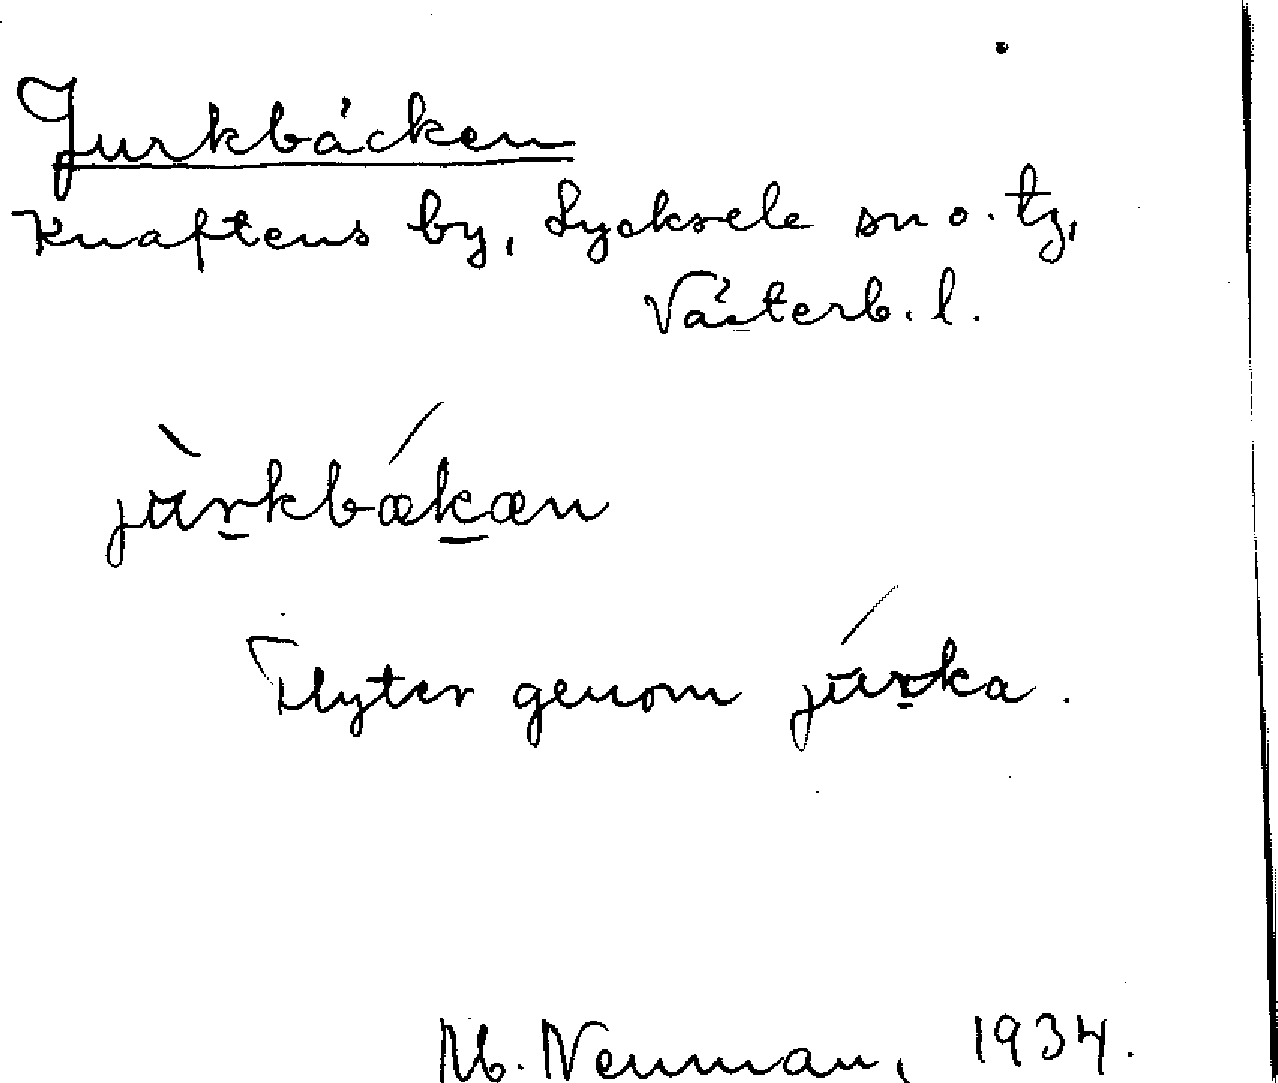 Jurkbäcken
Knaftens by, Lycksele sn o. tg,
Västerb. l.
jùrkbǽkæn
Flyter genom júrka.
M. Neuman, 1934.